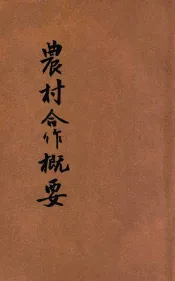 農村合作概要